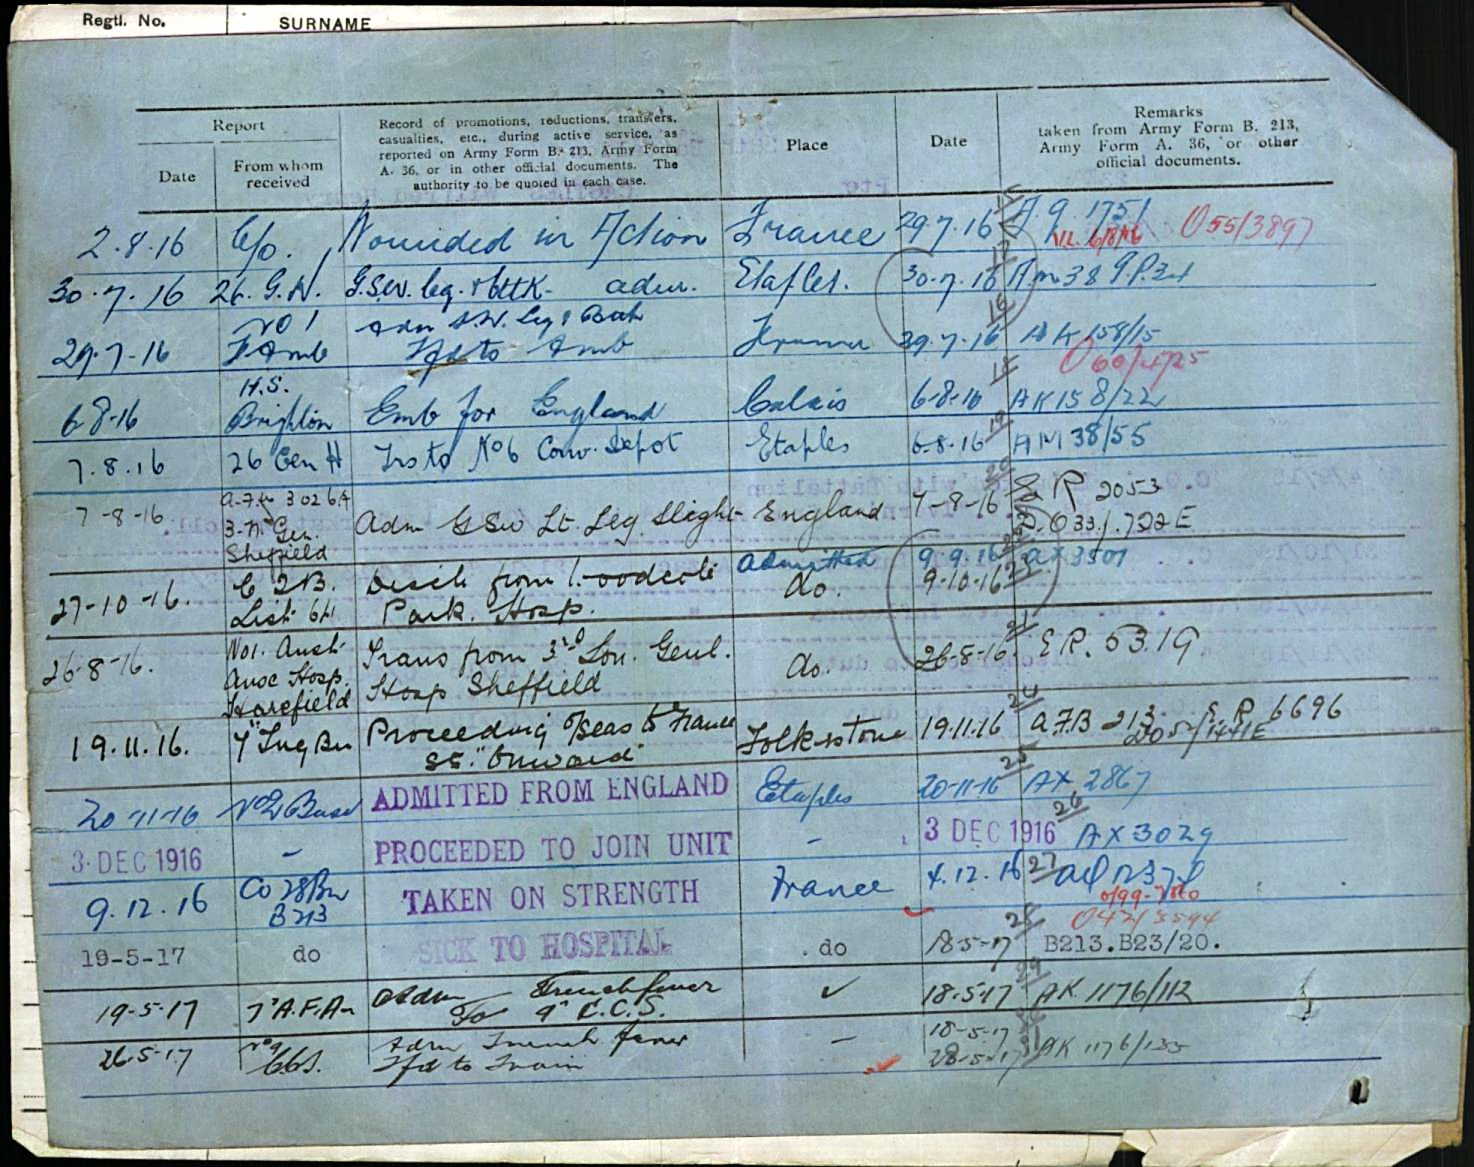 Regtl. No. SURNAME
Report
Date
From whom received
Record of promotions, reductions, transfers,
casualties, etc., during active service, as
reported on Army Form B. 213, Army Form
A. 36, or in other official documents. The
authority to be quoted in each case.
Place
Date
Remarks
taken from Army Form B. 213,
Army Form A. 36, or other
official documents.
2.8.16 C/o. Wounded in Action France 29.7.16 1751 O55/3897
30.7.16 26.G.H. G.S.W. leg. & adm. Etaples. 30.7.16 Am38
No 1 Adm S.W. Leg &
29.7-16 F Amb Tfd to Amb France 29.7.16 AK158/15
O60/4725
H.S.
6-8-16 Brighton Emb for England Calais 6-8-16 AK158/22
7.8.16 26 Gen H Trs to No 6 Conv. Depot Etaples 6.8.16 AM38/55
7-8-16 3.N. Gen. Sheffield Adm GSW Lt. Leg. Slight England 7-8-16 ER 2053
O33/722E
Admitted 9.9.16 AX3507
27-10-16. List Disch from Woodcote
Park. Hosp. do. 9-10-16
26-8-16. No1. Aust. Auxe Hosp. Harefield Trans from 3rd Genl.
Hosp Sheffield do. 26-8-16. E.R. 5319
19.11.16. 7" Trg Bn Proceeding O'seas to France
SS. "Onward" Folkestone 19.11.16 A.F.B 213. E.R 6696
20-11-16 No 2 Base ADMITTED FROM ENGLAND Etaples 20-11-16 AX 2867
3 DEC 1916 - PROCEEDED TO JOIN UNIT - 3 DEC 1916 AX3029
9.12.16 CO 28Bn B213 TAKEN ON STRENGTH France 4.12.16
19-5-17 do SICK TO HOSPITAL do 18-5-17 B213.B23/20.
19-5-17 7"A.F.A. Adm Trench fever
To 9" C.C.S. ✓ 18.5.17 AK 1176/112
26.5-17 No 9 CCS. Adm Trench fever 18-5-17
Tfd to Train - 28-5-17 AK 1176/135